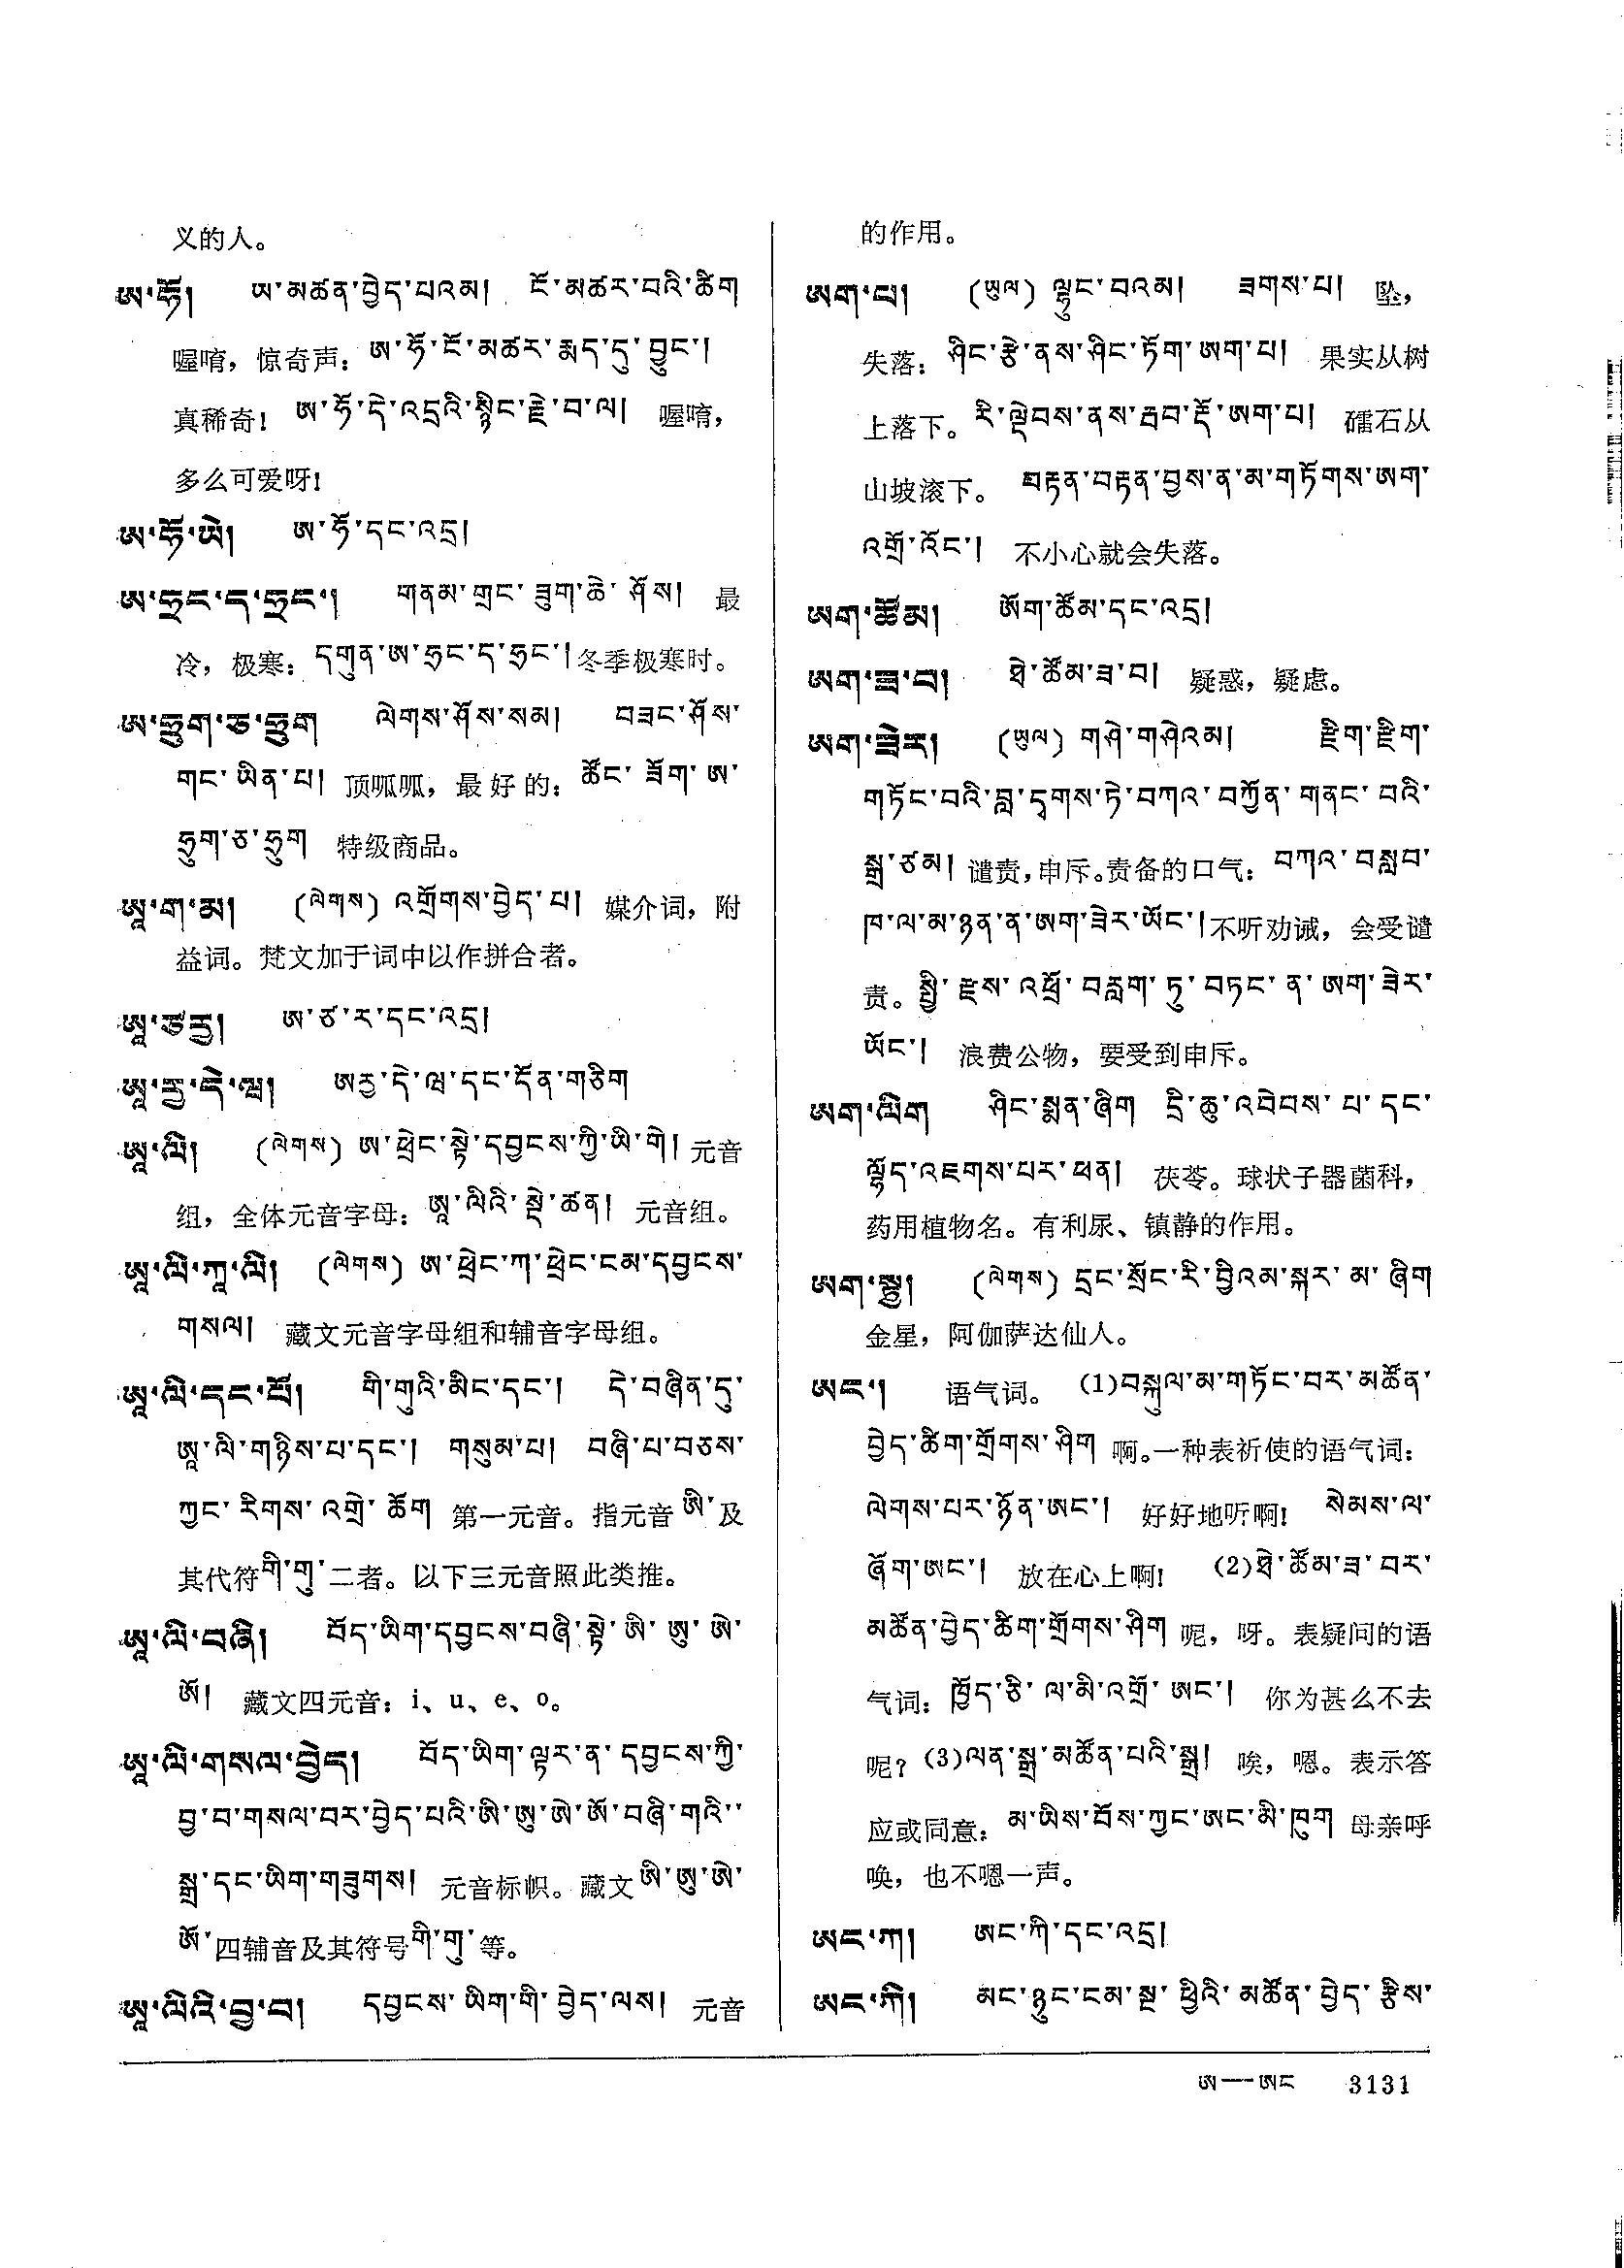 义的人。
ཨ་ཧོ། ཨ་མཚན་བྱེད་པའམ། ངོ་མཚར་བའི་ཚིག
喔唷，惊奇声：ཨ་ཧོ་ངོ་མཚར་རྨད་དུ་བྱུང་།
真稀奇！ ཨ་ཧོ་དེ་འདྲའི་སྙིང་རྗེ་བ་ལ། 喔唷，
多么可爱呀！
ཨ་ཧོ་ཡེ། ཨ་ཧོ་དང་འདྲ།
ཨ་ཧྲང་ད་ཧྲང་། གནམ་གྲང་ཟུག་ཆེ་ཤོས། 最
冷，极寒：དགུན་ཨ་ཧྲང་ད་ཧྲང་།冬季极寒时。
ཨ་ཧྲུག་ཅ་ཧྲུག ལེགས་ཤོས་སམ། བཟང་ཤོས་
གང་ཡིན་པ། 顶呱呱，最好的：ཚོང་ཟོག་ཨ་
ཧྲུག་ཅ་ཧྲུག 特级商品。
ཨཱ་ག་མ། (ལེགས) འགྲོགས་བྱེད་པ། 媒介词，附
益词。梵文加于词中以作拼合者。
ཨཱ་ཙརྱ། ཨ་ཙ་ར་དང་འདྲ།
ཨཱ་རྱ་དེ་ཝ། ཨརྱ་དེ་ཝ་དང་དོན་གཅིག
ཨཱ་ལི། (ལེགས) ཨ་ཕྲེང་སྟེ་དབྱངས་ཀྱི་ཡི་གེ། 元音
组，全体元音字母：ཨཱ་ལིའི་སྡེ་ཚན། 元音组。
ཨཱ་ལི་ཀཱ་ལི། (ལེགས) ཨ་ཕྲེང་ཀ་ཕྲེང་ངམ་དབྱངས་
གསལ། 藏文元音字母组和辅音字母组。
ཨཱ་ལི་དང་པོ། གི་གུའི་མིང་དང་། དེ་བཞིན་དུ་
ཨཱ་ལི་གཉིས་པ་དང་། གསུམ་པ། བཞི་པ་བཅས་
ཀྱང་རིགས་འགྲེ་ཆོག 第一元音。指元音ཨི་及
其代符གི་གུ་二者。以下三元音照此类推。
ཨཱ་ལི་བཞི། བོད་ཡིག་དབྱངས་བཞི་སྟེ་ཨི་ཨུ་ཨེ་
ཨོ། 藏文四元音：i、u、e、o。
ཨཱ་ལི་གསལ་བྱེད། བོད་ཡིག་ལྟར་ན་དབྱངས་ཀྱི་
བྱ་བ་གསལ་བར་བྱེད་པའི་ཨི་ཨུ་ཨེ་ཨོ་བཞི་གའི་
སྒྲ་དང་ཡིག་གཟུགས། 元音标帜。藏文ཨི་ཨུ་ཨེ་
ཨོ་四辅音及其符号གི་གུ་等。
ཨཱ་ལིའི་བྱ་བ། དབྱངས་ཡིག་གི་བྱེད་ལས། 元音
的作用。
ཨག་པ། (ཡུལ) ལྷུང་བའམ། ཟགས་པ། 坠，
失落：ཤིང་རྩེ་ནས་ཤིང་ཏོག་ཨག་པ། 果实从树
上落下。རི་ལྡེབས་ནས་རྦབ་རྡོ་ཨག་པ། 礌石从
山坡滚下。 བརྟན་བརྟན་བྱས་ན་མ་གཏོགས་ཨག་
འགྲོ་འོང་། 不小心就会失落。
ཨག་ཚོམ། ཨོག་ཚོམ་དང་འདྲ།
ཨག་ཟ་བ། ཐེ་ཚོམ་ཟ་བ། 疑惑，疑虑。
ཨག་ཟེར། (ཡུལ) གཤེ་གཤེའམ། རྫིག་རྫིག་
གཏོང་བའི་བླ་དྭགས་ཏེ་བཀའ་བཀྱོན་གནང་བའི་
སྒྲ་ཙམ། 谴责，申斥。责备的口气：བཀའ་བསླབ་
ཁ་ལ་མ་ཉན་ན་ཨག་ཟེར་ཡོང་།不听劝诫，会受谴
责。སྤྱི་རྫས་འཕྲོ་བརླག་ཏུ་བཏང་ན་ཨག་ཟེར་
ཡོང་། 浪费公物，要受到申斥。
ཨག་ལིག ཤིང་སྨན་ཞིག དྲི་ཆུ་འབེབས་པ་དང་
ལྷོད་འཇགས་པར་ཕན། 茯苓。球状子器菌科，
药用植物名。有利尿、镇静的作用。
ཨག་སྟྱ། (ལེགས) དྲང་སྲོང་རི་བྱིའམ་སྐར་མ་ཞིག
金星，阿伽萨达仙人。
ཨང་། 语气词。 (1)བསྐུལ་མ་གཏོང་བར་མཚོན་
བྱེད་ཚིག་གྲོགས་ཤིག 啊。一种表祈使的语气词：
ལེགས་པར་ཉོན་ཨང་། 好好地听啊！ སེམས་ལ་
ཞོག་ཨང་། 放在心上啊！ (2)ཐེ་ཚོམ་ཟ་བར་
མཚོན་བྱེད་ཚིག་གྲོགས་ཤིག 呢，呀。表疑问的语
气词：ཁྱོད་ཅི་ལ་མི་འགྲོ་ཨང་། 你为甚么不去
呢？(3)ལན་སྒྲ་མཚོན་པའི་སྒྲ། 唉，嗯。表示答
应或同意：མ་ཡིས་བོས་ཀྱང་ཨང་མི་ཁུག 母亲呼
唤，也不嗯一声。
ཨང་ཀ། ཨང་ཀི་དང་འདྲ།
ཨང་ཀི། མང་ཉུང་ངམ་སྔ་ཕྱིའི་མཚོན་བྱེད་རྩིས་
ཨ—ཨང 3131